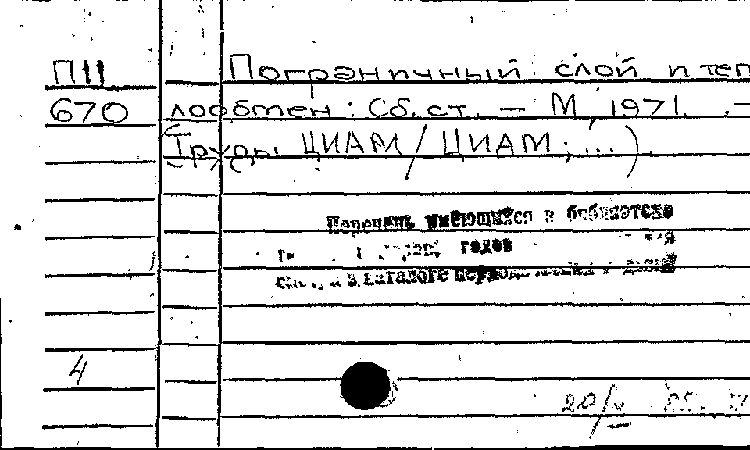 П11 Пограничный слой и теп
670 лообмен: Сб. ст. – М, 1971. –
(Труды ЦИАМ/ЦИАМ; ...).
Перечень имеющихся в библиотеке
годов
в каталоге
4
20/V